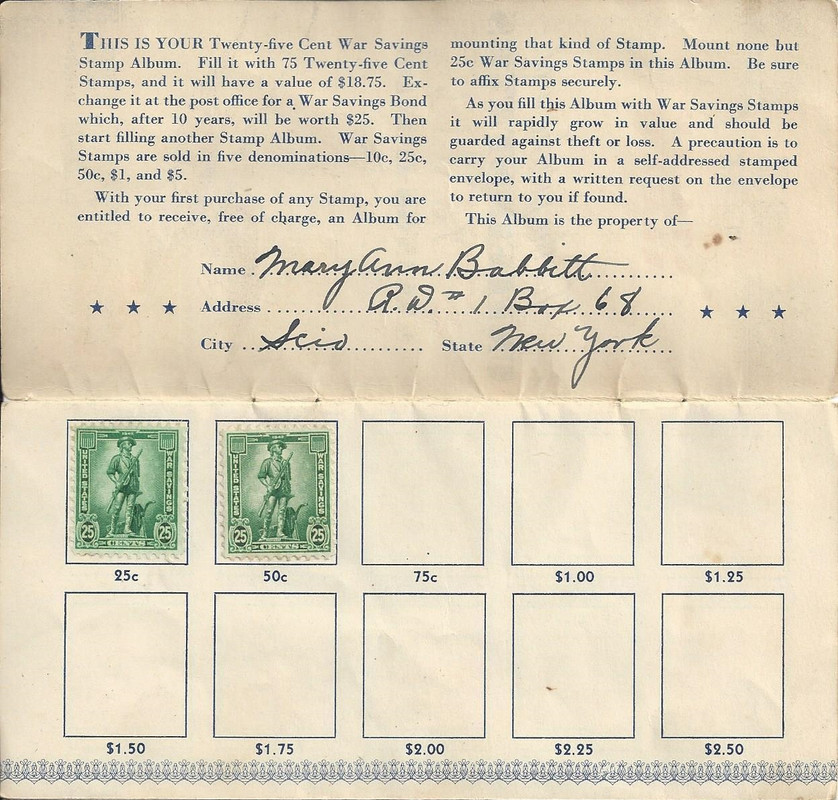 THIS IS YOUR Twenty-five Cent War Savings
Stamp Album. Fill it with 75 Twenty-five Cent
Stamps, and it will have a value of $18.75. Ex-
change it at the post office for a War Savings Bond
which, after 10 years, will be worth $25. Then
start filling another Stamp Album. War Savings
Stamps are sold in five denominations—10c, 25c,
50c, $1, and $5.
With your first purchase of any Stamp, you are
entitled to receive, free of charge, an Album for
mounting that kind of Stamp. Mount none but
25c War Savings Stamps in this Album. Be sure
to affix Stamps securely.
As you fill this Album with War Savings Stamps
it will rapidly grow in value and should be
guarded against theft or loss. A precaution is to
carry your Album in a self-addressed stamped
envelope, with a written request on the envelope
to return to you if found.
This Album is the property of—
Name Mary Ann Babbitt
Address R.D. #1 Box 68
City Scio State New York
UNITED STATES WAR SAVINGS
25 CENTS 25
UNITED STATES WAR SAVINGS
25 CENTS 25
25c 50c 75c $1.00 $1.25
$1.50 $1.75 $2.00 $2.25 $2.50